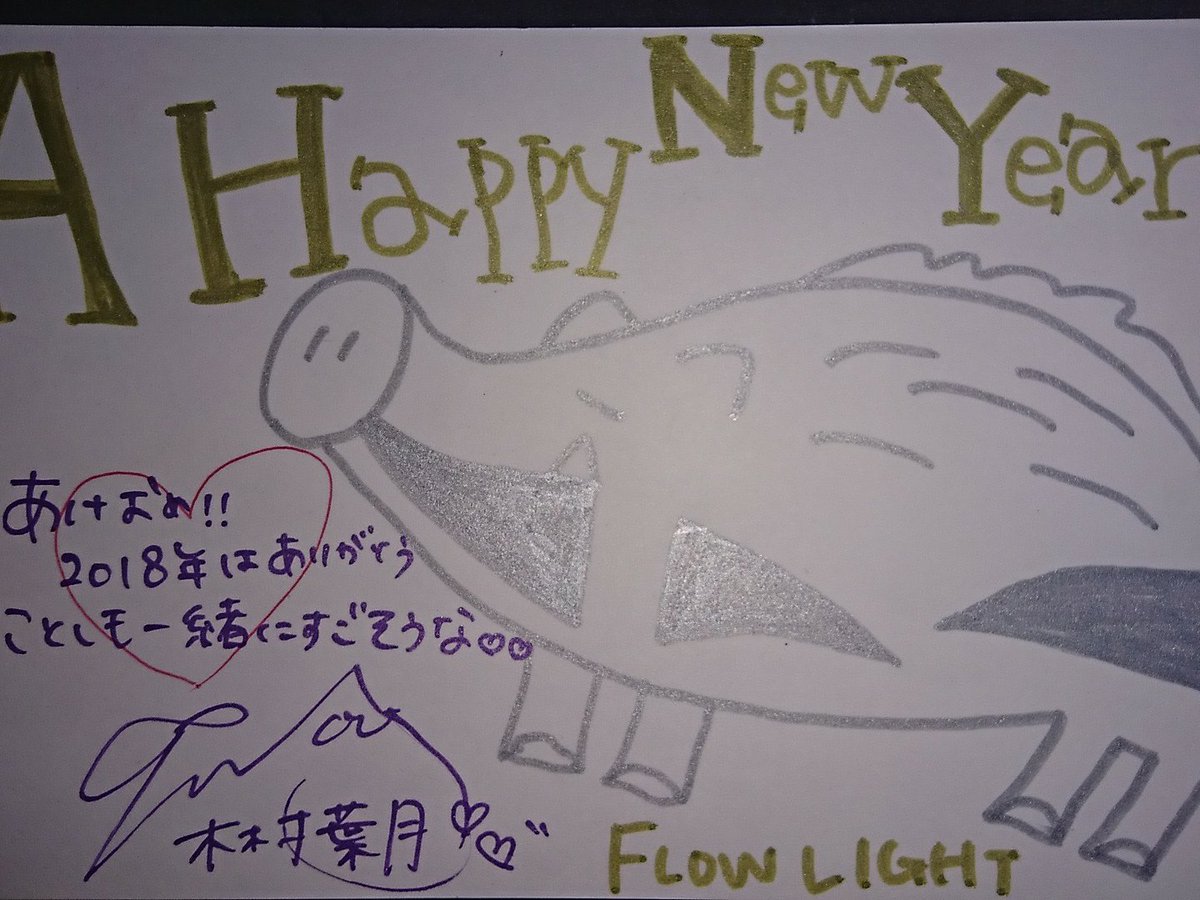 A Happy New Year
あけおめ!!
2018年はありがとう
ことしも一緒にすごそうな♡♡
木村葉月♡♡
FLOW LIGHT